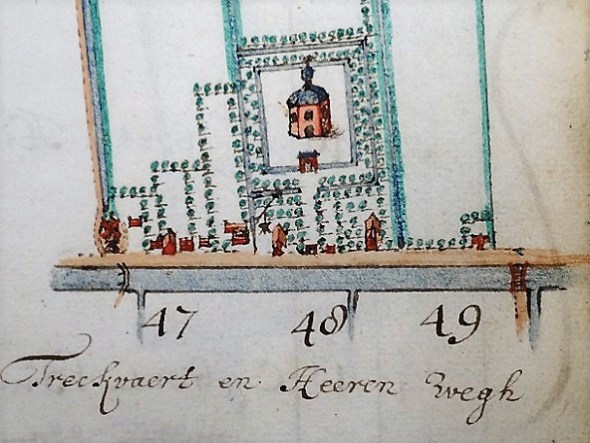 47 48 49
Treckvaert en Heeren Wegh